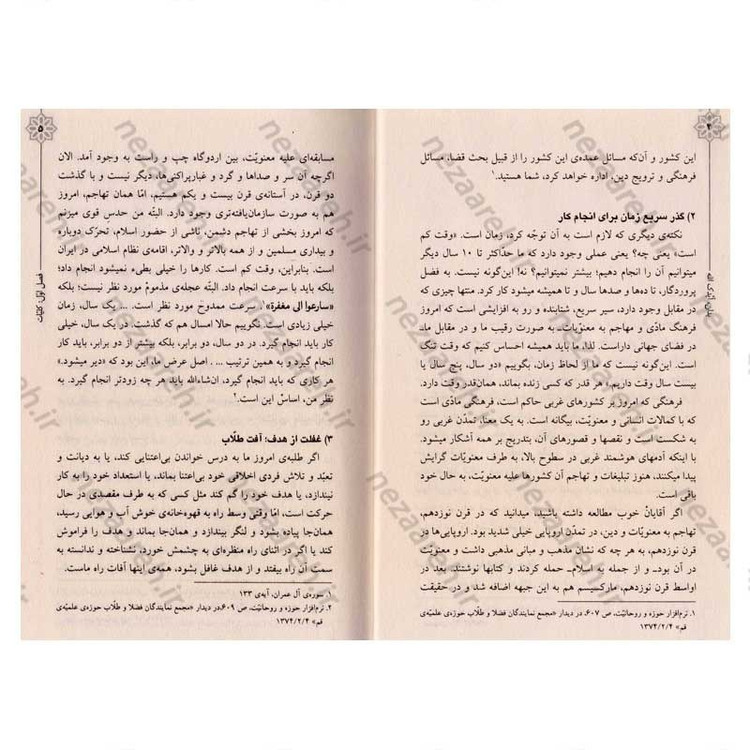 ۴
این کشور و آن‌که مسائل عمده‌ی این کشور را از قبیل بحث قضا، مسائل
فرهنگی و ترویج دین، اداره خواهد کرد، شما هستید.¹
۲) گذر سریع زمان برای انجام کار
نکته‌ی دیگری که لازم است به آن توجّه کرد، زمان است. «وقت کم
است» یعنی چه؟ یعنی عملی وجود دارد که ما حداکثر تا ۱۰ سال دیگر
میتوانیم آن را انجام دهیم؛ بیشتر نمیتوانیم؟ نه! این‌گونه نیست. به فضل
پروردگار، تا ده‌ها و صدها سال و تا همیشه هست. منتها چیزی که
در مقابل وجود دارد، سیر سریع، شتابنده و رو به افزایشی است که امروز
فرهنگ مادّی و مهاجم به معنویّات به صورت رقیب ما و در مقابل ما،
در فضای جهانی داراست. لذا، ما باید همیشه احساس کنیم که وقت تنگ
است. این‌گونه نیست که ما از لحاظ زمان، بگوییم «دو سال، پنج سال یا
بیست سال وقت داریم». هر قدر که کسی زنده بماند، همان‌قدر وقت دارد.
فرهنگی که امروز بر کشورهای غربی حاکم است، فرهنگی مادّی است
که با کمالات انسانی و معنویّت، بیگانه است. به یک معنا، تمدن غربی رو
به شکست است و نقصها و قصورهای آن، بتدریج بر همه آشکار میشود.
با اینکه آدمهای هوشمند غربی در سطوح بالا، به طرف معنویّات گرایش
پیدا میکنند، هنوز تبلیغات و تهاجم آن کشورها علیه معنویّت، به حال خود
باقی است.
اگر آقایان خوب مطالعه داشته باشید، میدانید که در قرن نوزدهم،
تهاجم به معنویّات و دین، در تمدّن اروپایی خیلی شدید بود. اروپایی‌ها در
قرن نوزدهم، به هر چه که نشان مذهب و مبانی مذهبی داشت و معنویّات
در آن بود ـ و از جمله به اسلام ـ حمله کردند و کتابها نوشتند. بعد در
اواسط قرن نوزدهم، مارکسیسم هم به این جبهه اضافه شد و در حقیقت
۱. نرم‌افزار حوزه و روحانیّت، ص ۶۰۷، در دیدار «مجمع نمایندگان فضلا و طلّاب حوزه‌ی علمیّه‌ی
قم» ۱۳۷۴/۲/۴
۵
فصل اوّل: کلیّات
مسابقه‌ای علیه معنویّت، بین اردوگاه چپ و راست به وجود آمد. الان
اگرچه آن سر و صداها و گرد و غبارپراکنی‌ها، دیگر نیست و با گذشت
دو قرن، در آستانه‌ی قرن بیست و یکم هستیم، امّا همان تهاجم، باز
هم به صورت سازمان‌یافته‌تری وجود دارد. البتّه من حدس قوی میزنم
که امروز بخشی از تهاجم دشمن، ناشی از حضور اسلام، تحرّک دوباره
و بیداری مسلمین و از همه بالاتر و والاتر، اقامه‌ی نظام اسلامی در ایران
است. بنابراین، وقت کم است. کارها را خیلی بطیء نمیشود انجام داد؛
بلکه باید با سرعت انجام داد. البتّه عجله‌ی مذموم مورد نظر نیست... بلکه
«سارعوا الی مغفرة»¹، سرعت ممدوح مورد نظر است... یک سال، زمان
خیلی زیادی است. نگوییم حالا امسال هم که گذشت. در یک سال، باید
کار یک سال انجام گیرد. در دو سال، دو برابر، بلکه بیشتر از دو برابر، باید کار
انجام گیرد و به همین ترتیب ... . اصل عرض ما، این بود که «دیر میشود».
هر کاری که باید انجام گیرد، ان‌شاءالله باید هر چه زودتر انجام گیرد. به
نظر من، اساس این است.²
۳) غفلت از هدف؛ آفت طلّاب
اگر طلبه‌ی امروز ما به درس خواندن بی‌اعتنایی کند، یا به دیانت و
تعبّد و تلاش فردی اخلاقی خود بی‌اعتنا بماند، یا استعداد خود را به کار
نیندازد، یا هدف خود را گم کند مثل کسی که به طرف مقصدی در حال
حرکت است، امّا وقتی وسط راه به قهوه‌خانه‌ی خوش آب و هوایی رسید،
همان‌جا پیاده بشود و لنگر بیندازد و همان‌جا بماند و هدف را فراموش
کند یا اگر در اثنای راه منظره‌ای به چشمش خورد، نشناخته و ندانسته به
سمت آن راه بیفتد و از هدف غافل بشود، همه‌ی اینها آفات راه ماست.
۱. سوره‌ی آل عمران، آیه‌ی ۱۳۳
۲. نرم‌افزار حوزه و روحانیّت، ص ۶۰۹، در دیدار «مجمع نمایندگان فضلا و طلّاب حوزه‌ی علمیّه‌ی
قم» ۱۳۷۴/۲/۴
nezaareh.ir